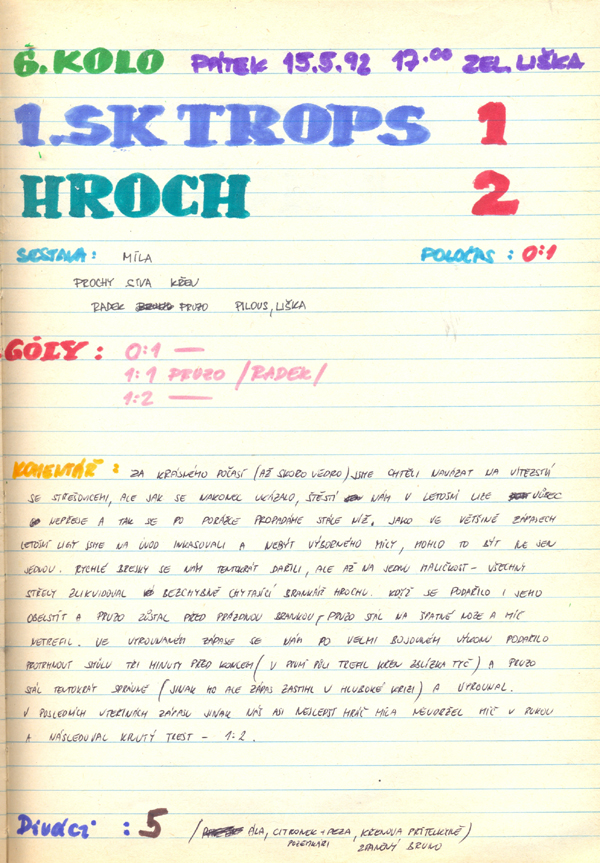 6. KOLO PÁTEK 15.5.92 17.00 ZEL. LIŠKA
1.SK TROPS 1
HROCH 2
SESTAVA: MÍLA POLOČAS : 0:1
PROCHY SIVA KŘEN
RADEK PRUZO PILOUS, LIŠKA
GÓLY : 0:1 —
1:1 PRUZO /RADEK/
1:2 —
KOMENTÁŘ : ZA KRÁSNÉHO POČASÍ (AŽ SKORO VEDRO) JSME CHTĚLI NAVÁZAT NA VÍTĚZSTVÍ
SE STŘEŠOVICEMI, ALE JAK SE NAKONEC UKÁZALO, ŠTĚSTÍ NÁM V LETOŠNÍ LIZE VŮBEC
NEPŘEJE A TAK SE PO PORÁŽCE PROPADÁME STÁLE NÍŽ. JAKO VE VĚTŠINĚ ZÁPASECH
LETOŠNÍ LIGY JSME NA ÚVOD INKASOVALI A NEBÝT VÝBORNÉHO MÍLY, MOHLO TO BÝT NE JEN
JEDNOU. RYCHLÉ BRESKY SE NÁM TENTOKRÁT DAŘILI, ALE AŽ NA JEDNU MALIČKOST - VŠECHNY
STŘELY ZLIKVIDOVAL BEZCHYBNĚ CHYTAJÍCÍ BRANKÁŘ HROCHU. KDYŽ SE PODAŘILO I JEHO
OBELSTÍT A PRUZO ZŮSTAL PŘED PRÁZDNOU BRANKOU, PRUZO STÁL NA ŠPATNÉ NOZE A MÍČ
NETREFIL. VE VYROVNANÉM ZÁPASE SE NÁM PO VELMI BOJOVNÉM VÝKONU PODAŘILO
PROTRHNOUT SMŮLU TŘI MINUTY PŘED KONCEM (V PRVNÍ PŮLI TREFIL KŘEN ZBLÍZKA TYČ) A PRUZO
STÁL TENTOKRÁT SPRÁVNĚ (JINAK HO ALE ZÁPAS ZASTIHL V HLUBOKÉ KRIZI) A VYROVNAL.
V POSLEDNÍCH VTEŘINÁCH ZÁPASU JINAK NÁŠ ASI NEJLEPŠÍ HRÁČ MÍLA NEUDRŽEL MÍČ V RUKOU
A NÁSLEDOVAL KRUTÝ TREST - 1:2.
Diváci : 5 (ÁLA, CITRONEK + PEZA, KŘENOVA PŘÍTELKYNĚ)
BRUNO